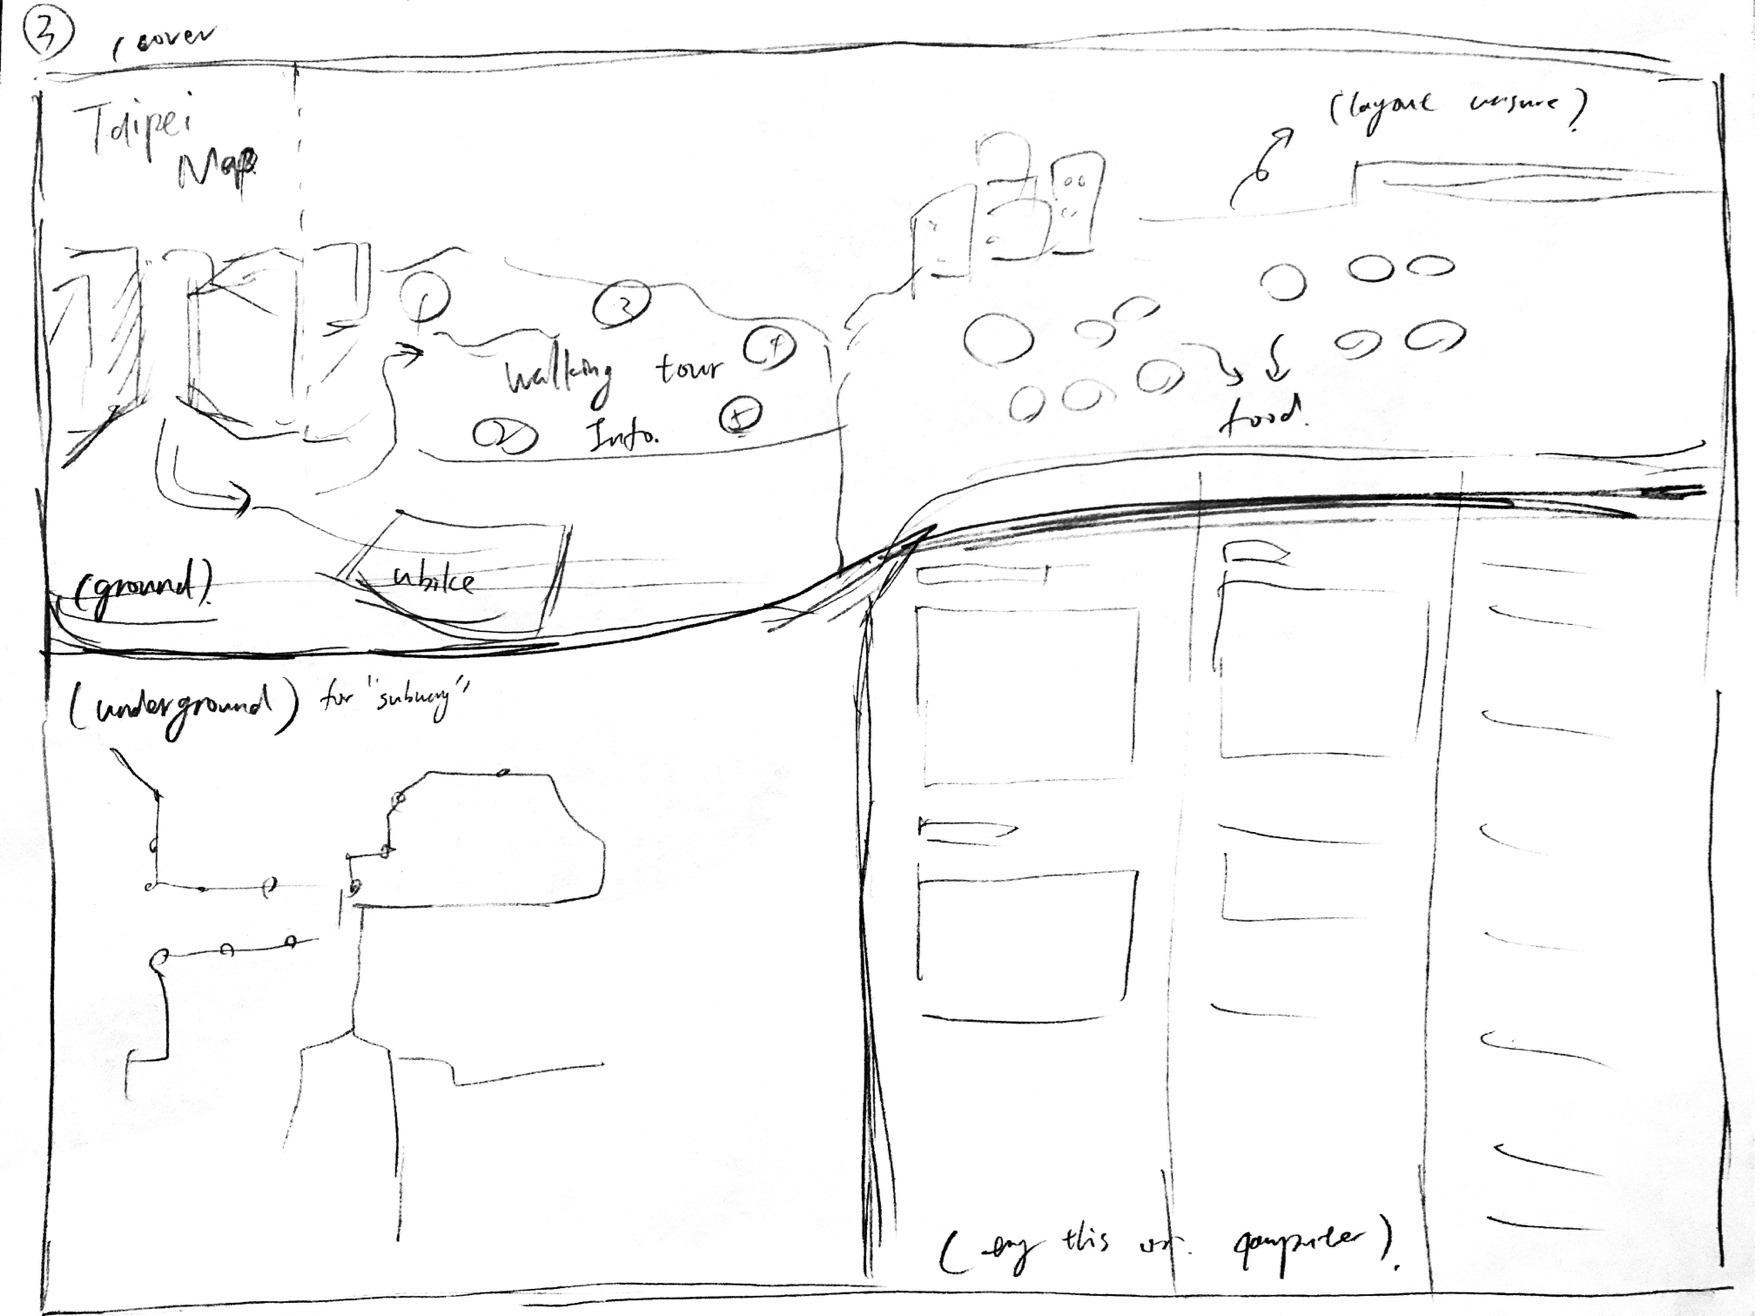 3
cover
Taipei
Map
(layout unsure)
1
3
4
walking tour
2
Info.
5
food.
(ground).
ubike
(underground) for "subway"
this
computer).